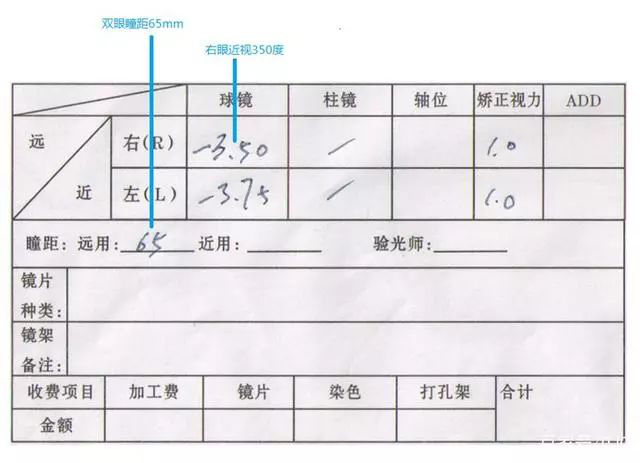 双眼瞳距65mm
右眼近视350度
球镜 柱镜 轴位 矫正视力 ADD
远 右(R) -3.50 / 1.0
近 左(L) -3.75 / 1.0
瞳距: 远用: 65 近用: 验光师:
镜片
种类:
镜架
备注:
收费项目 加工费 镜片 染色 打孔架 合计
金额